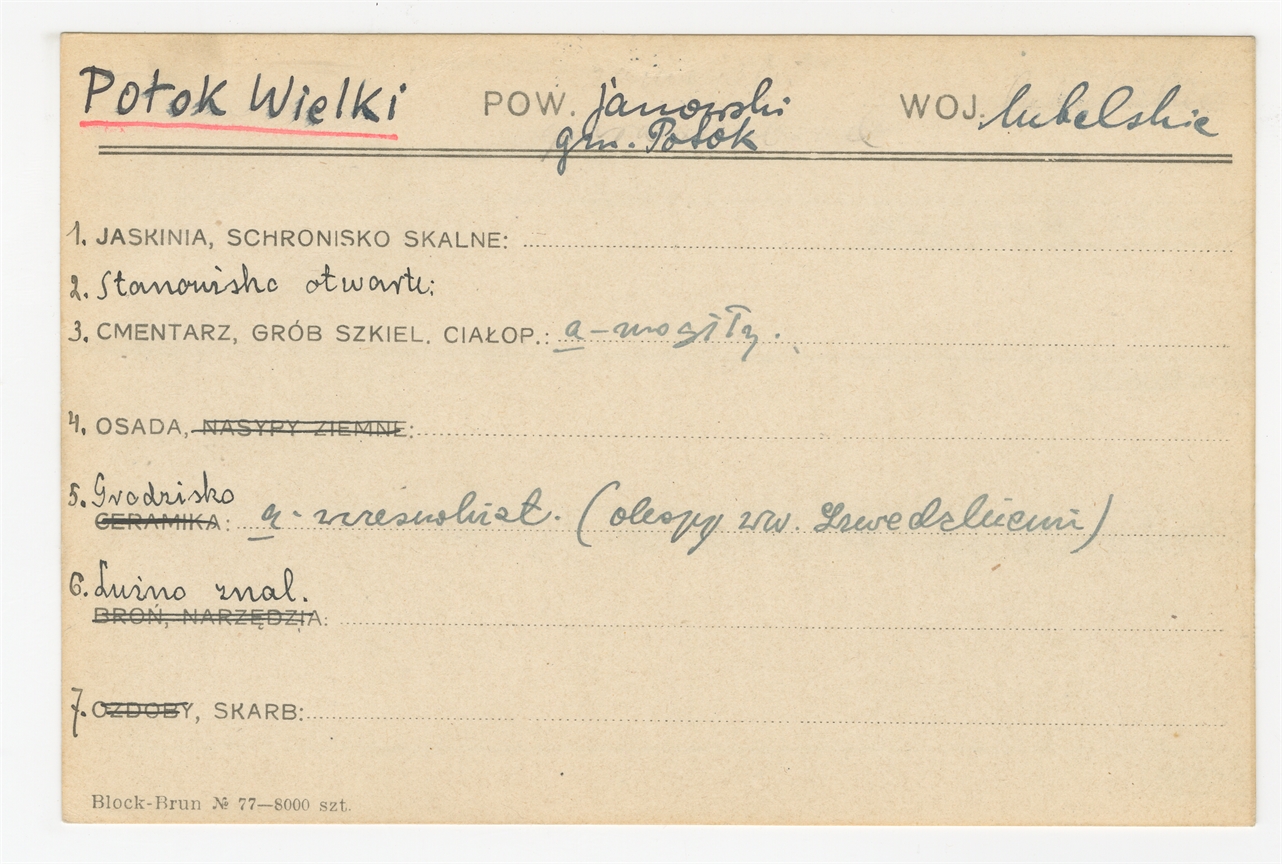 Potok Wielki POW. janowski WOJ. lubelskie
gm. Potok
1. JASKINIA, SCHRONISKO SKALNE:
2. Stanowisko otwarte:
3. CMENTARZ, GRÓB SZKIEL. CIAŁOP.: a - mogiły.
4. OSADA, NASYPY ZIEMNE:
5. Grodzisko
CERAMIKA: a - wczesnohist. (okopy zw. Szwedzkiemi)
6. Luźno znal.
BROŃ, NARZĘDZIA:
7. OZDOBY, SKARB:
Block-Brun № 77—8000 szt.